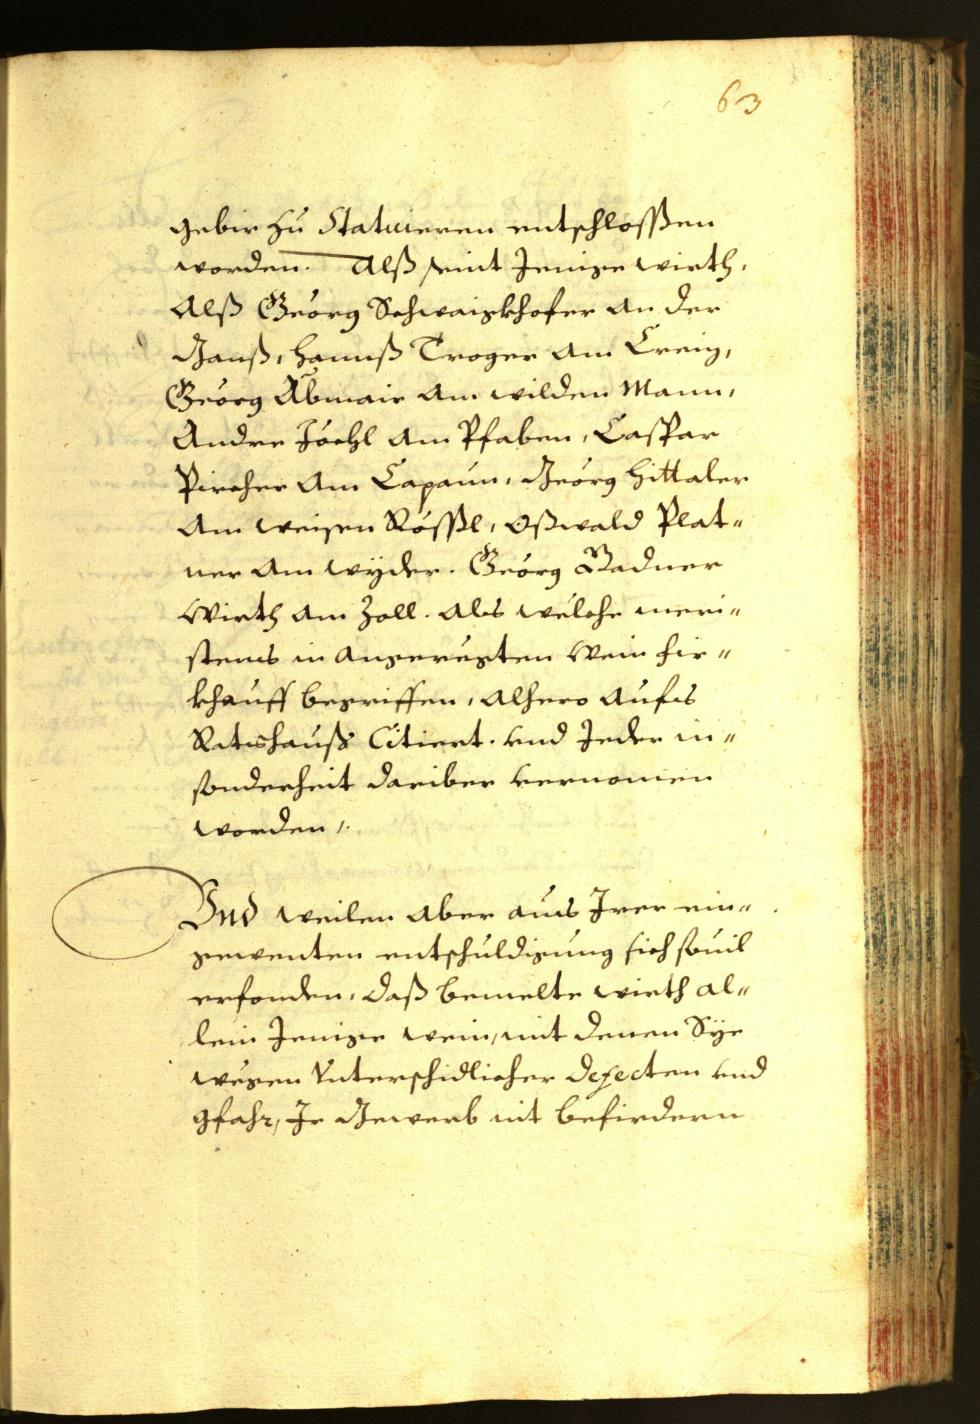 63
gebir zu Statuieren entschlossen
worden. Alß seint Jenige wirth,
Alß Geörg Schwaigkhofer an der
Ganß, Hannß Troger am Creiz,
Geörg Äbmair am wilden Mann,
Andre Jöchl am Pfaben, Caspar
Pircher am Capaun, Geörg Hittaler
am weisen Rössl, Oßwald Plat-
ner am wyder. Geörg Badner
Wirth am Zoll. als welche meri-
stens in angeregten Wein fir-
khauff begriffen, alhero aufs
Rathshauß Citiert. und Jeder in-
sonderheit dariber vernomen
worden/.
Und weilen aber aus Irer ein-
gewenten entschuldigung sich sovil
erfonden, daß bemelte wirth al-
lein Jenige wein, mit denen Sye
wegen Unterschidlicher defecten und
gfahr, Ir Gewerb nit befirdern